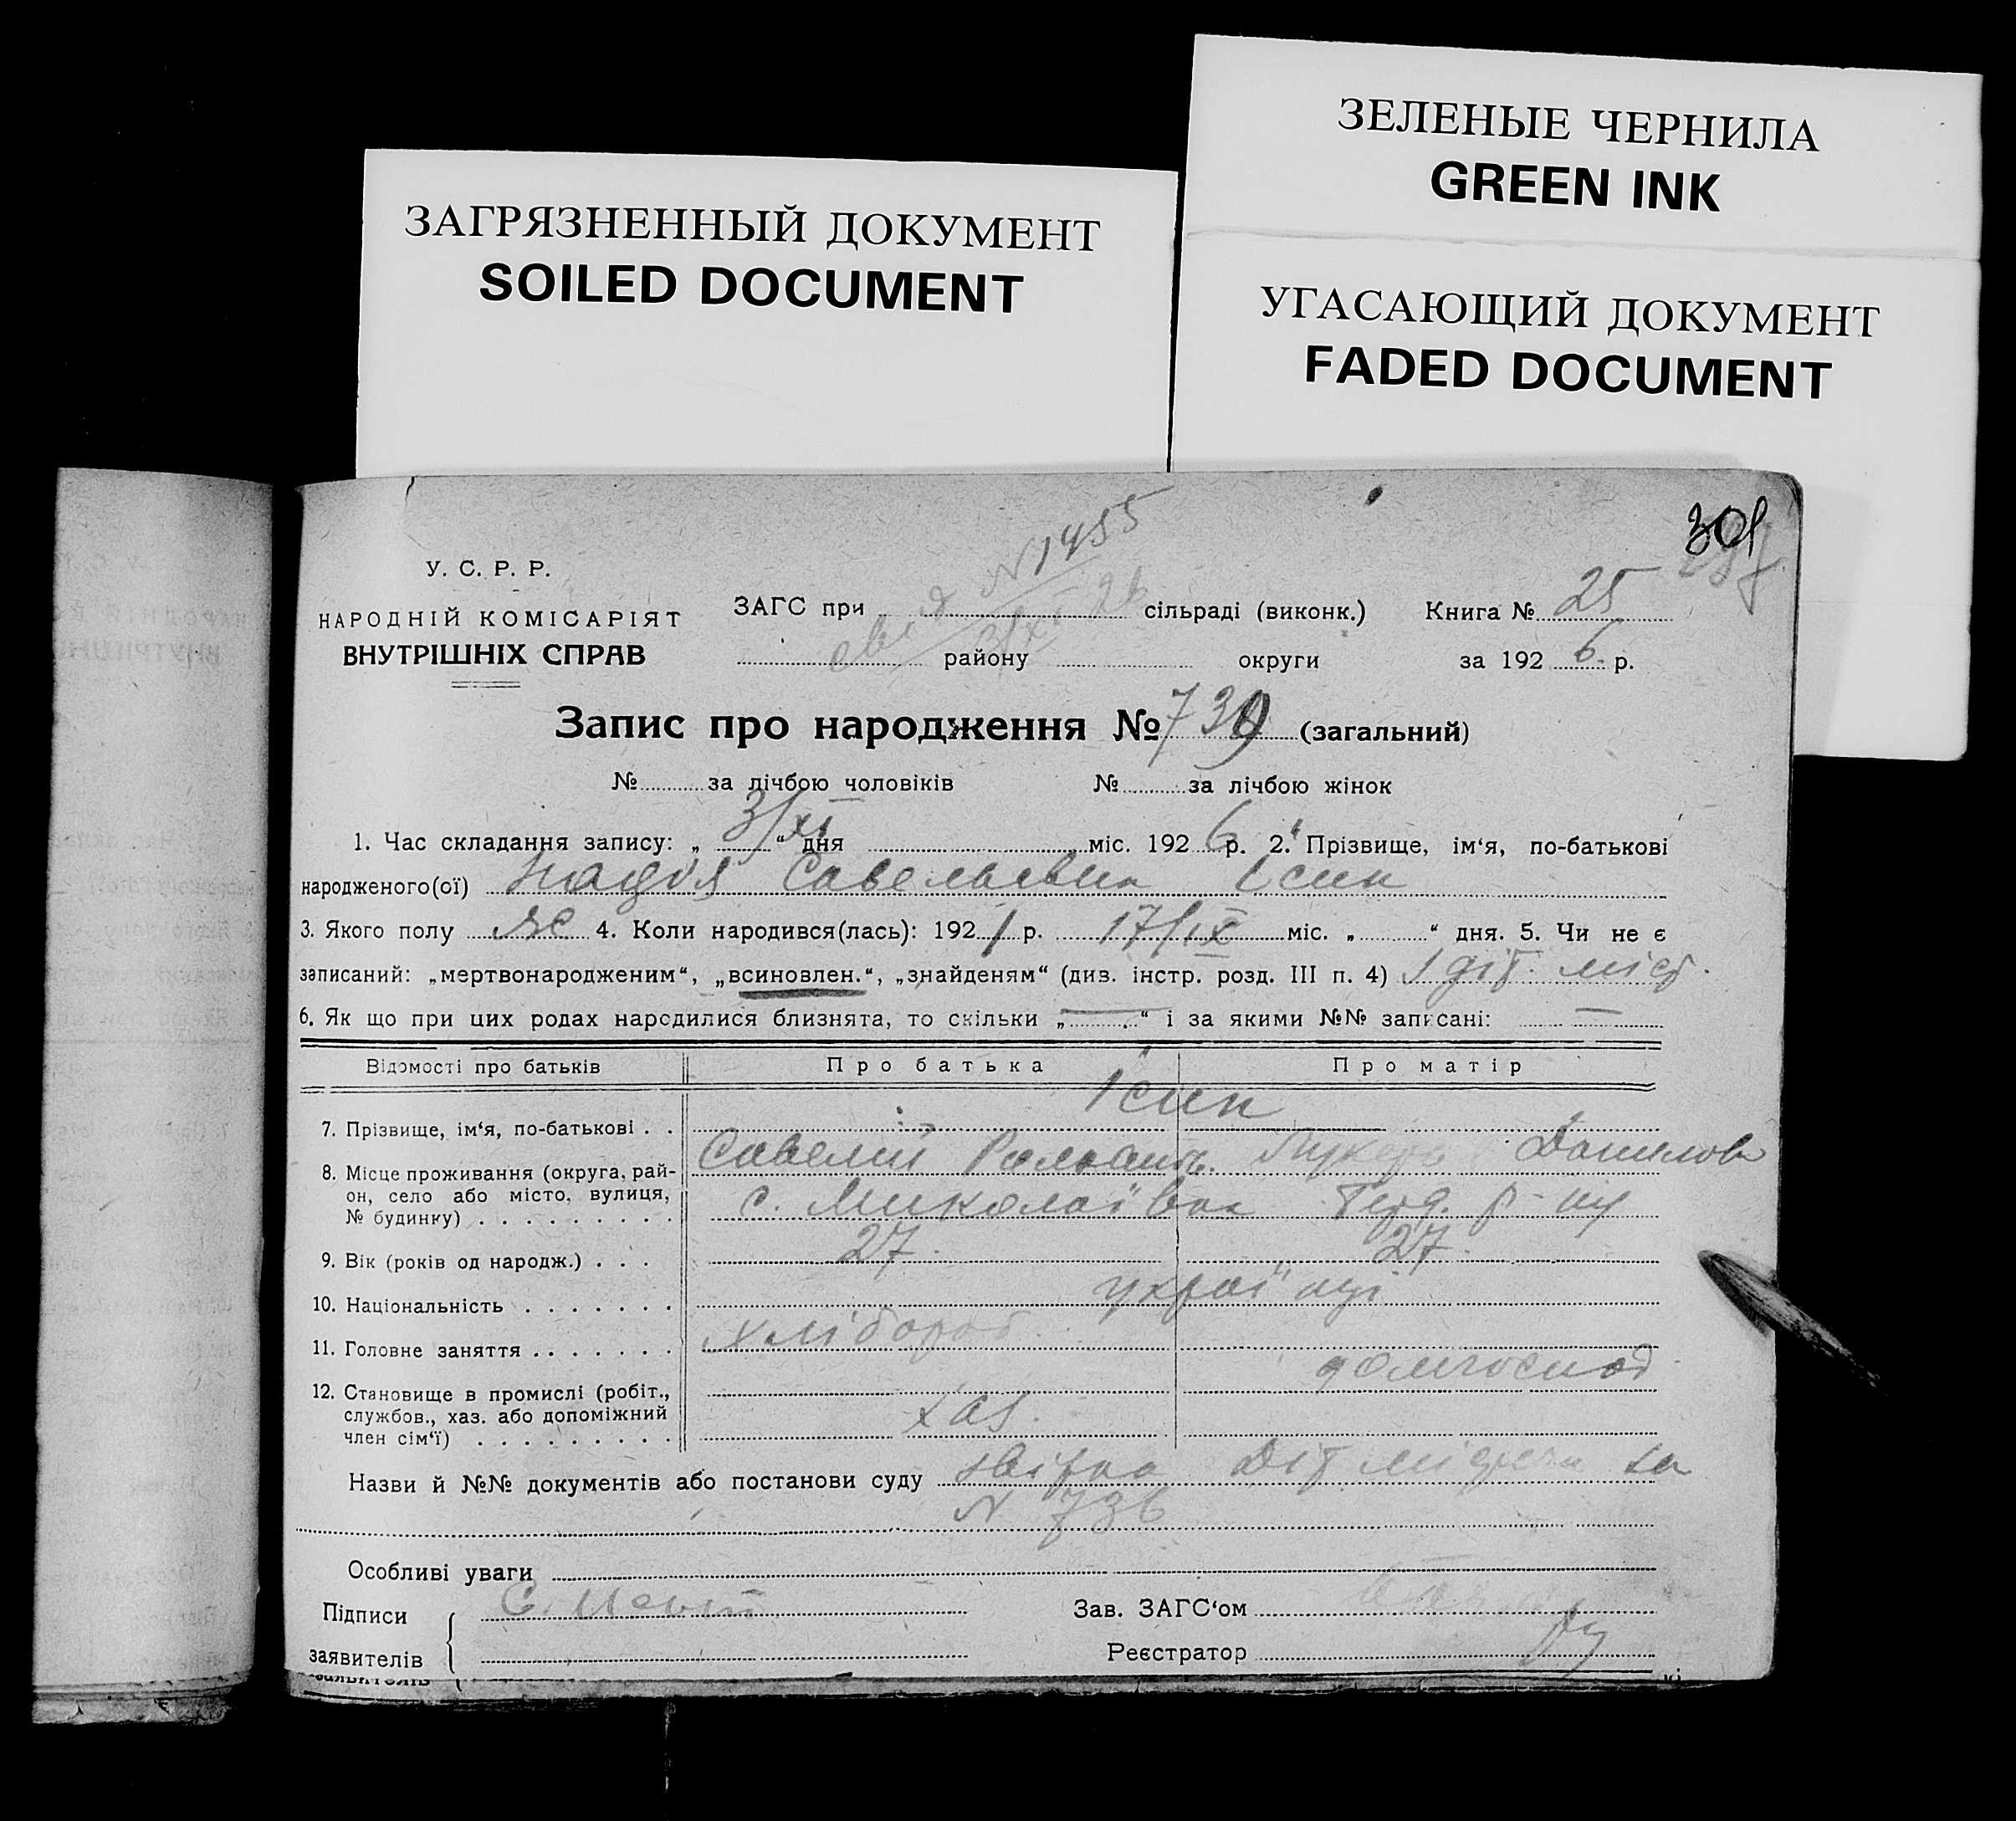 ЗЕЛЕНЫЕ ЧЕРНИЛА
GREEN INK
ЗАГРЯЗНЕННЫЙ ДОКУМЕНТ
SOILED DOCUMENT
УГАСАЮЩИЙ ДОКУМЕНТ
FADED DOCUMENT
N 1455
У. С. Р. Р.
НАРОДНІЙ КОМІСАРІЯТ
ВНУТРІШНІХ СПРАВ
ЗАГС при сільраді (виконк.) Книга № 25
району округи за 192 6 р.
Запис про народження № 739 (загальний)
№ за лічбою чоловіків № за лічбою жінок
1. Час складання запису: „ 3/XI “ дня міс. 192 6 р. 2. Прізвище, ім‘я, по-батькові
народженого(ої) Надія Савельевна Ісик
3. Якого полу ж 4. Коли народився(лась): 192 1 р. 17/IX міс. „ “ дня. 5. Чи не є
записаний: „мертвонародженим“, „всиновлен.“, „знайденям“ (див. інстр. розд. III п. 4) діт. міст.
6. Як що при цих родах народилися близнята, то скільки „ — “ і за якими №№ записані: —
Відомості про батьків Про батька Про матір
Ісик
7. Прізвище, ім‘я, по-батькові
Савелій Данилов
8. Місце проживання (округа, рай-
он, село або місто, вулиця,
№ будинку) с. Миколаївка р-ну
9. Вік (років од народж.) 27 27
10. Національність українці
11. Головне заняття хлібороб
домгоспод
12. Становище в промислі (робіт.,
службов., хаз. або допоміжний
член сім‘ї) хаз.
Назви й №№ документів або постанови суду діт за
N 736
Особливі уваги
Підписи
заявителів
Зав. ЗАГС‘ом
Реєстратор